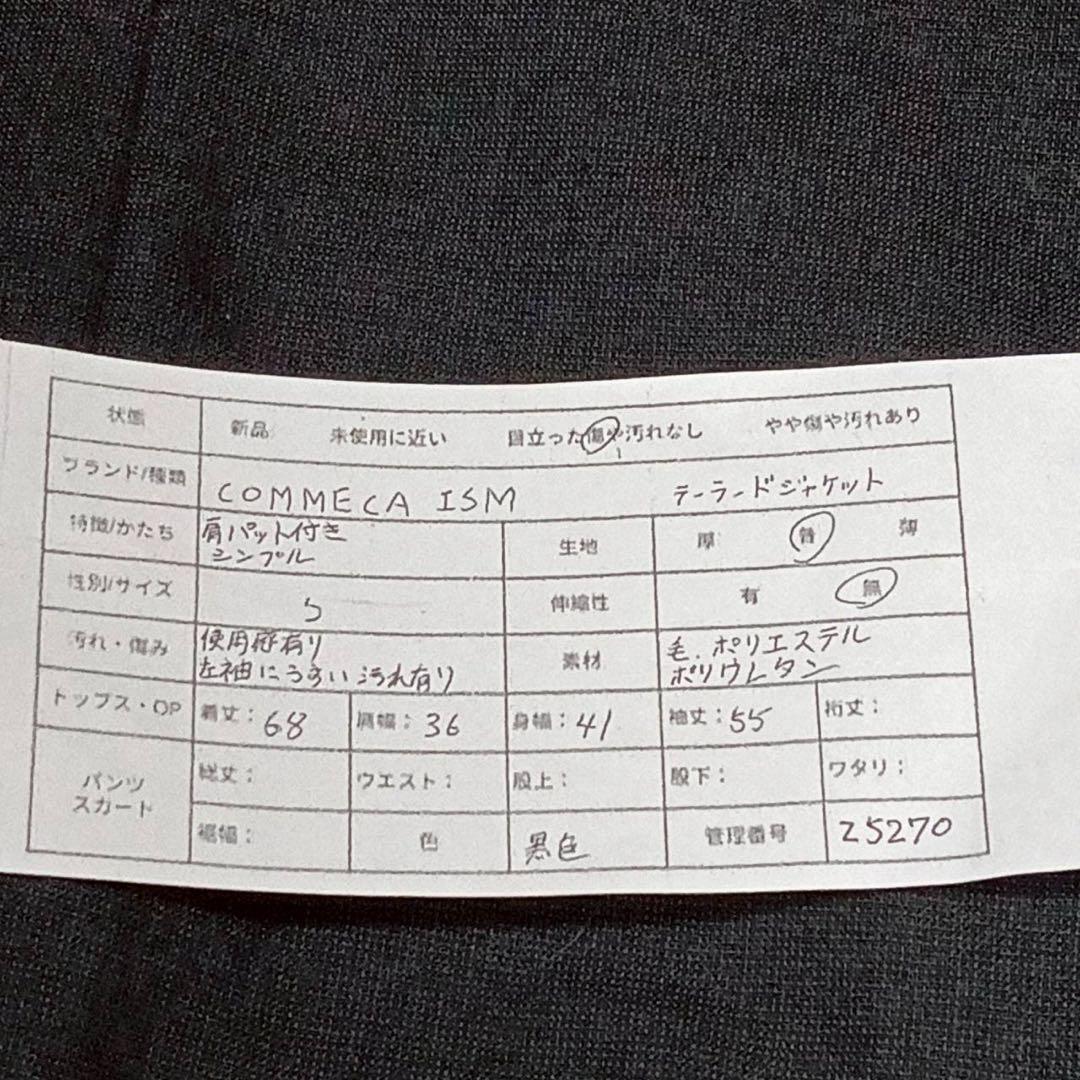 状態 新品 未使用に近い 目立った傷や汚れなし やや傷や汚れあり
ブランド/種類 COMMECA ISM テーラードジャケット
特徴/かたち 肩パット付き
シンプル
生地 厚 普 薄
性別/サイズ 伸縮性 有 無
汚れ・傷み 使用感有り
左袖にうすい汚れ有り
素材 毛、ポリエステル
ポリウレタン
トップス・OP 着丈:68 肩幅:36 身幅:41 袖丈:55 裄丈:
パンツ
スカート
総丈: ウエスト: 股上: 股下: ワタリ:
裾幅: 色 黒色 管理番号 25270